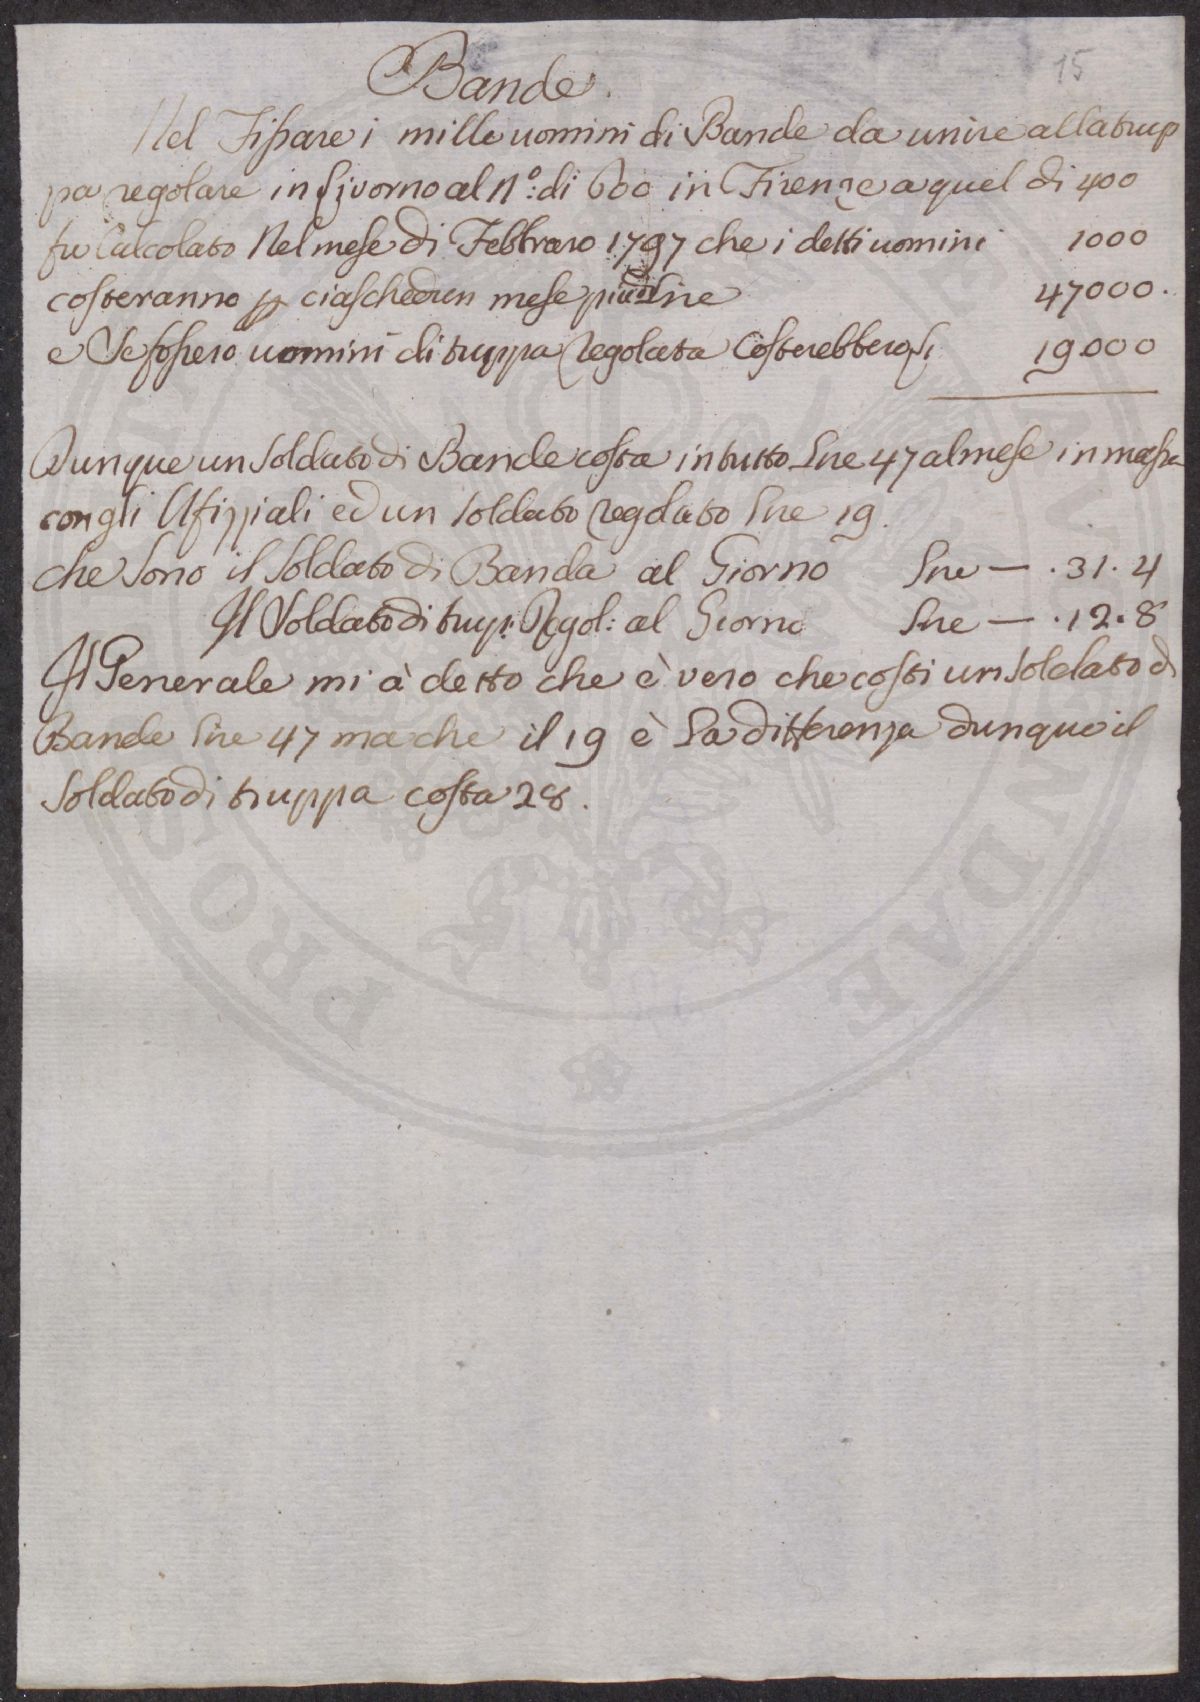 15
Bande.
Nel Fissare i mille uomini di Bande da unire alla trup
pa regolare in Livorno al N.º: di 600 in Firenze a quel di 400
fu Calcolato Nel mese di Febbraro 1797 che i detti uomini 1000
costeranno p ciaschedun mese più di Lire 47000.
e Se fossero uomini di truppa regolata Costerebbero 19000
Dunque un Soldato di Bande costa in tutto Lire 47 al mese in massa
con gli Ufizziali ed un Soldato regolato Lire 19.
che Sono il Soldato di Banda al Giorno Lire — . 31. 4
Il Soldato di trup: Regol: al Giorno Lire — . 12. 8
Il Generale mi à detto che è vero che costi un Soldato di
Bande Lire 47 ma che il 19 è La differenza dunque il
Soldato di truppa costa 28.